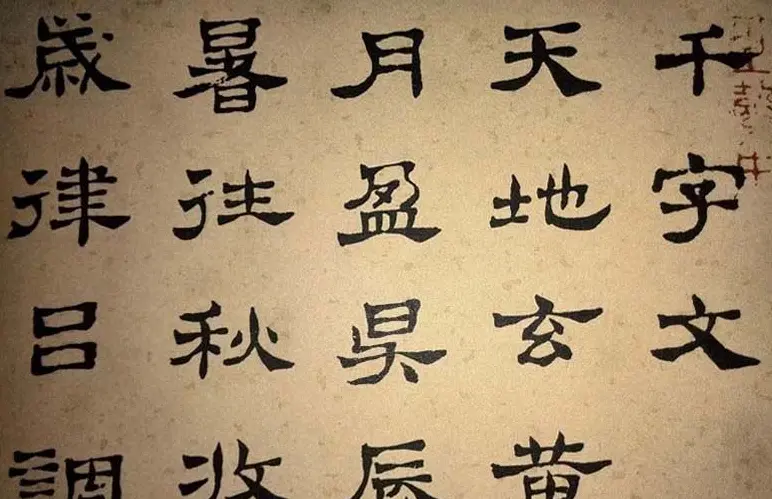 千字文
天地玄黄
月盈昃辰
暑往秋收
歲律呂調